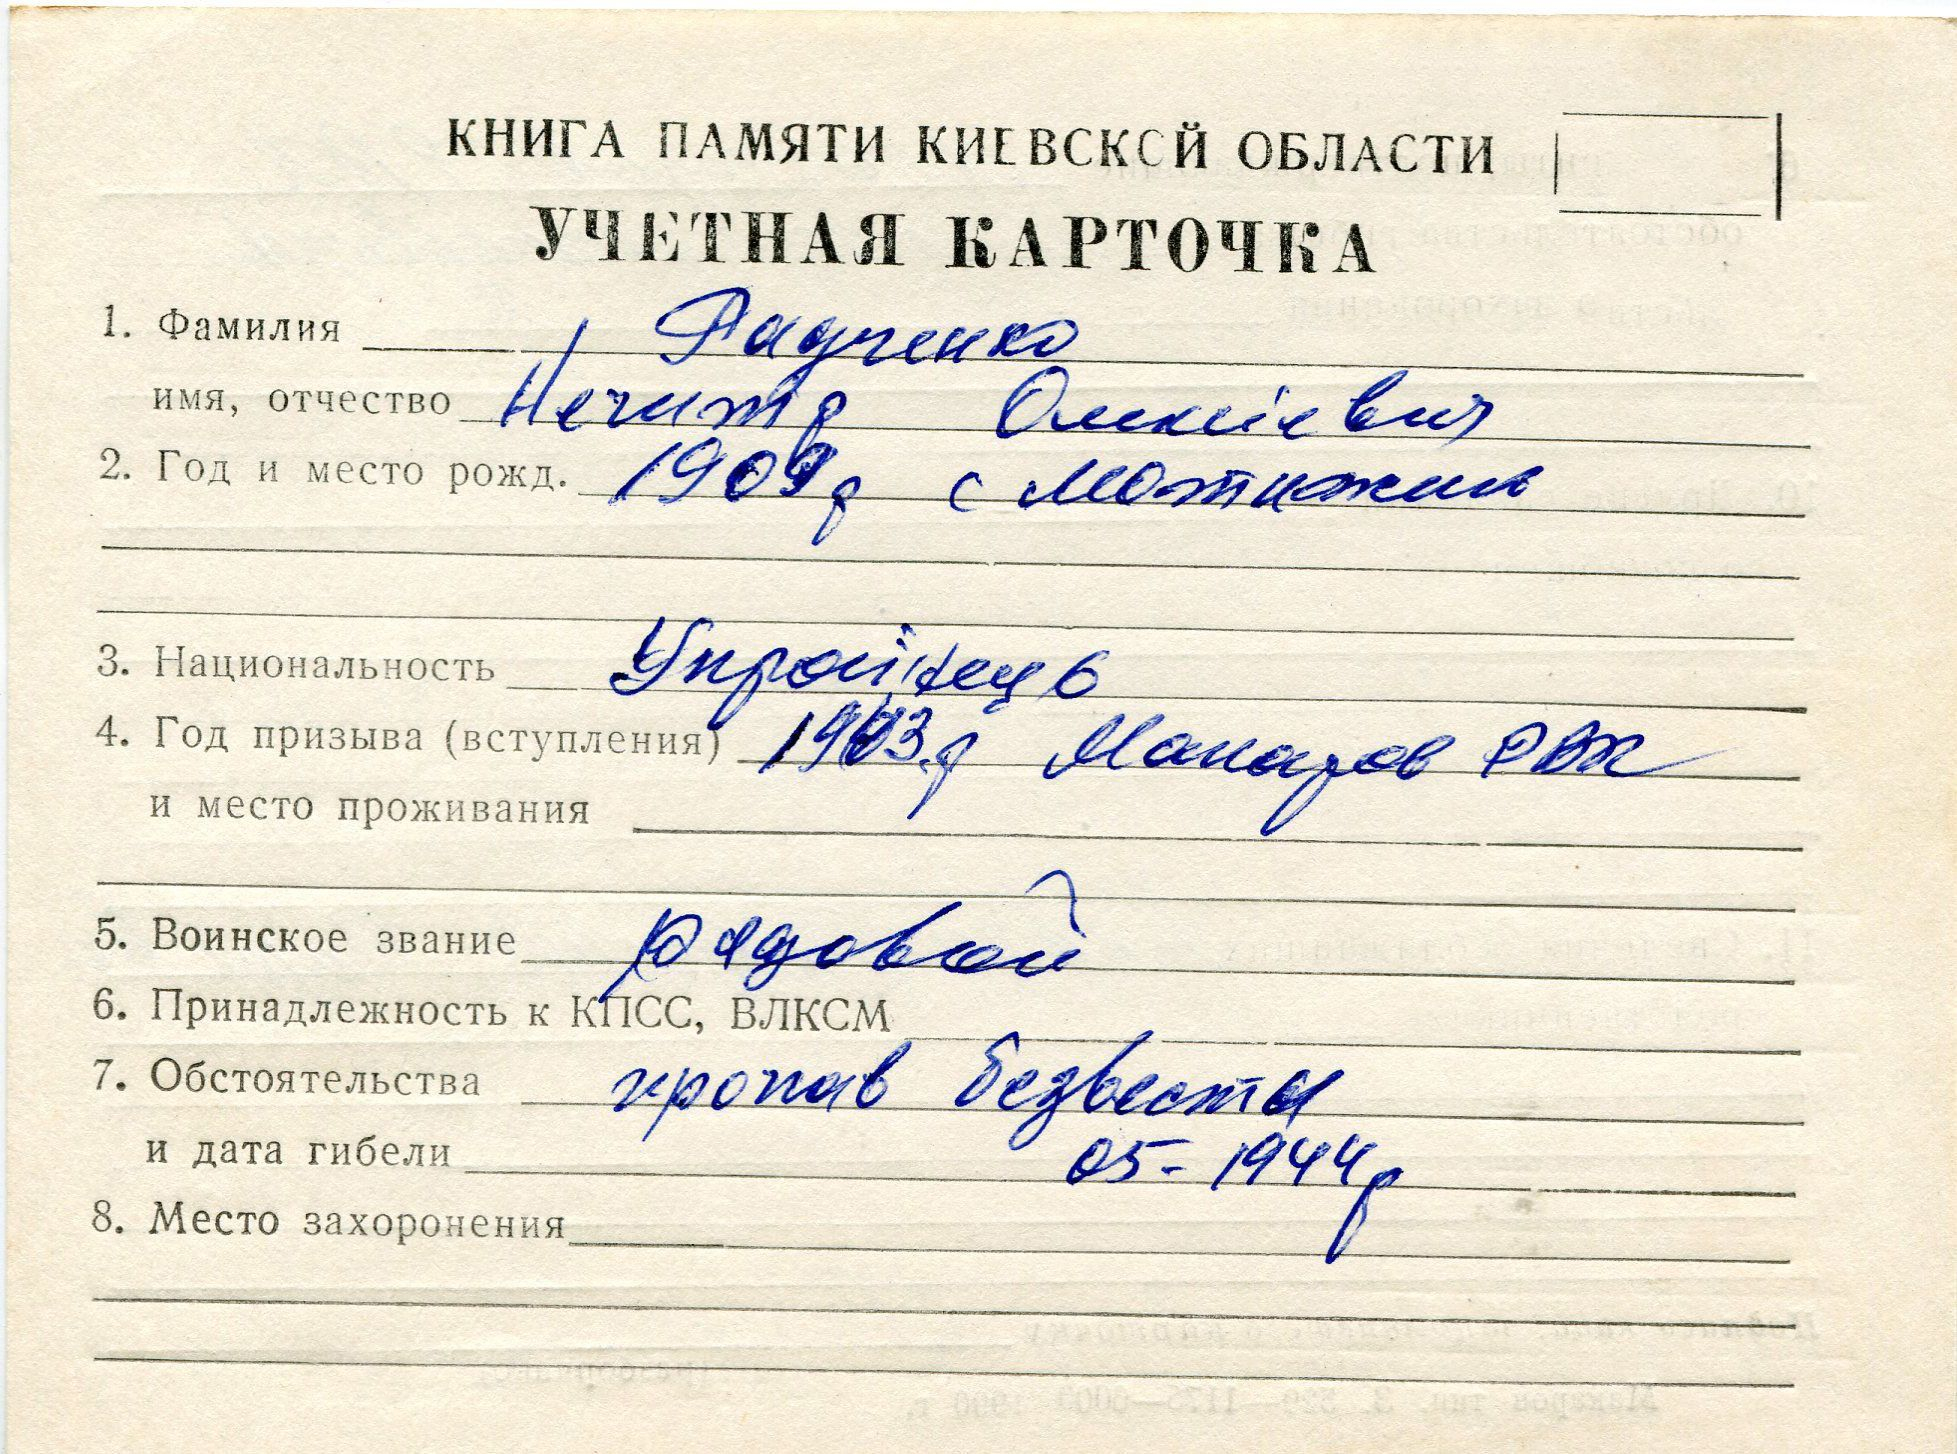 КНИГА ПАМЯТИ КИЕВСКОЙ ОБЛАСТИ
УЧЕТНАЯ КАРТОЧКА
1. Фамилия Радченко
имя, отчество Нечипір Олексієвич
2. Год и место рожд. 1909р с Мотижин
3. Национальность Українець
4. Год призыва (вступления) 1943р Макаров РВК
и место проживания
5. Воинское звание рядовой
6. Принадлежность к КПСС, ВЛКСМ
7. Обстоятельства пропав безвести
и дата гибели 05-1944р
8. Место захоронения